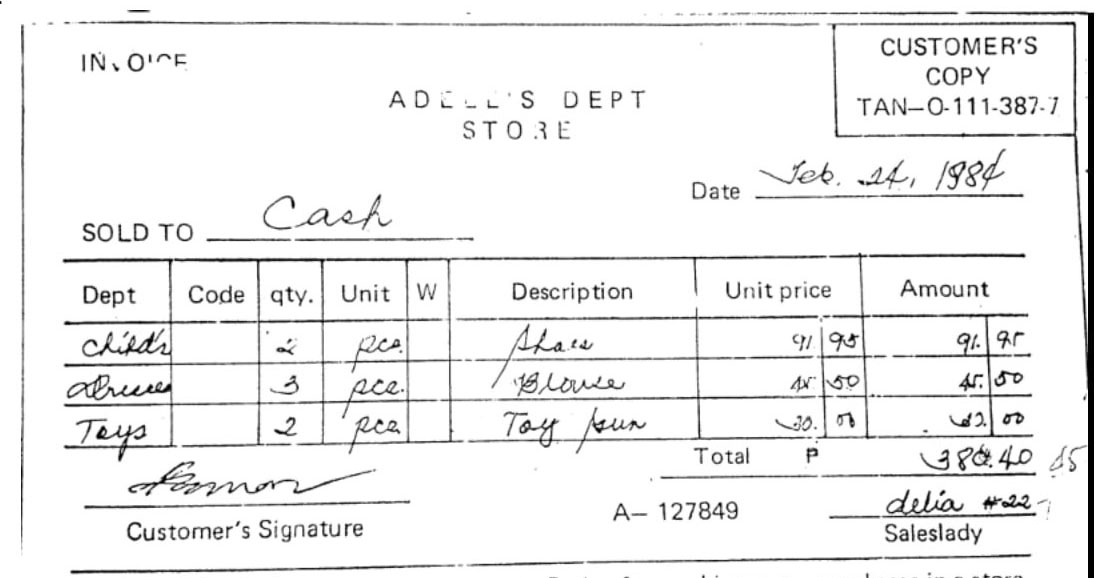 INVOICE
CUSTOMER'S
COPY
TAN—O-111-387-7
ADELL'S DEPT
STORE
Date Feb. 24, 1984
SOLD TO Cash
Dept Code qty. Unit W Description Unit price Amount
Child's 2 pcs. Shoes 91. 95 91. 95
3 pcs. Blouse 45. 50 45. 50
Toys 2 pcs. Toy gun 30. 00 00
Total ₱ 380.40
Customer's Signature
A— 127849
delia #22
Saleslady